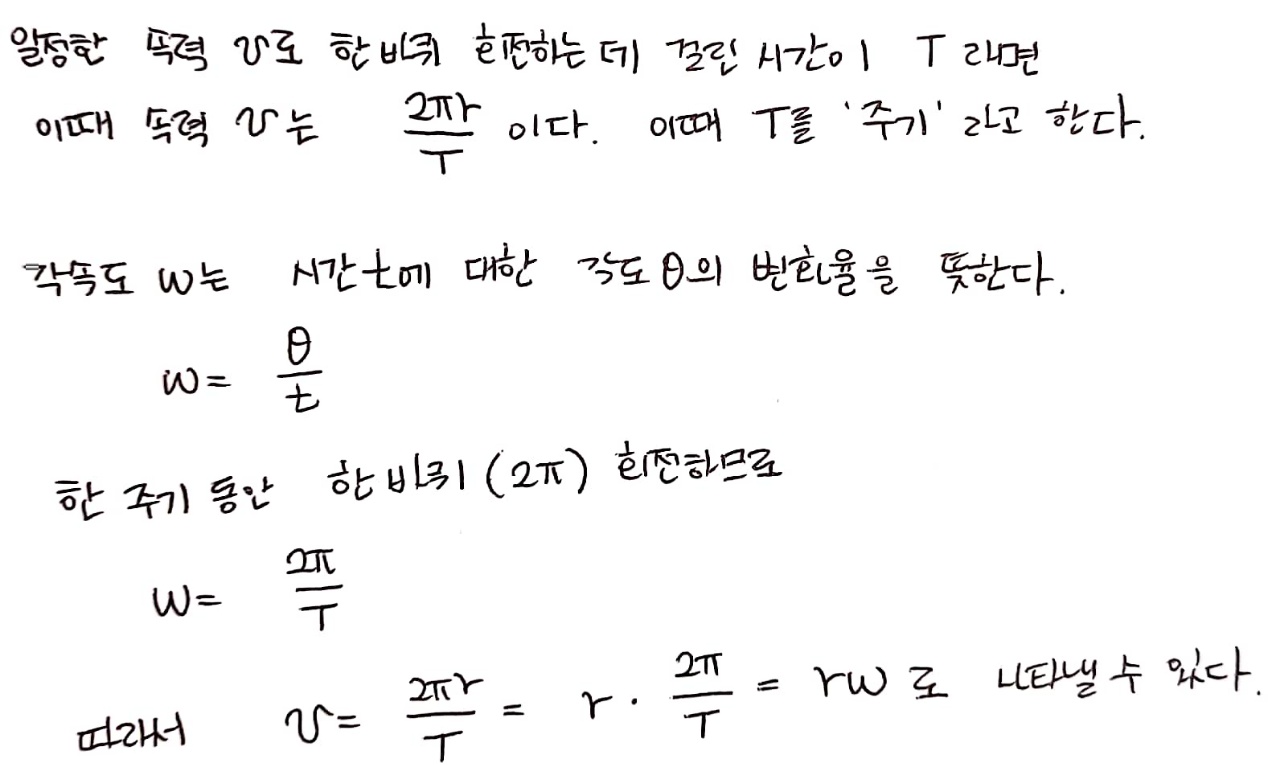 일정한 속력 v로 한 바퀴 회전하는 데 걸린 시간이 T 라면
이때 속력 v는 2πr/T 이다. 이때 T를 '주기' 라고 한다.
각속도 w는 시간 t에 대한 각도 θ의 변화율을 뜻한다.
w = θ/t
한 주기 동안 한 바퀴 (2π) 회전하므로
w = 2π/T
따라서 v = 2πr/T = r · 2π/T = rw 로 나타낼 수 있다.